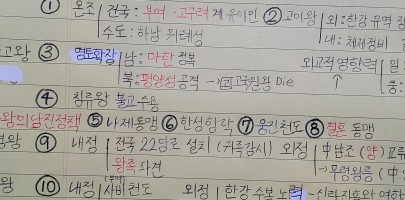 ① 온조 건국: 부여·고구려계 유이민 ② 고이왕 외: 한강 유역 장
수도: 하남 위례성 내: 체제정비
고왕 ③ 영토확장 남: 마한 정복 외교적영향력
북: 평양성 공격 → 고국원왕 Die ↑
④ 침류왕 불교 수용
왕의남진정책 ⑤ 나제동맹 ⑥ 한성함락 ⑦ 웅진천도 ⑧ 결혼 동맹
령왕 ⑨ 내정 전국 22담로 설치 (귀족감시) 외정 中남조 (양) 교류
왕족 파견 → 무령왕릉 (中
왕 ⑩ 내정 사비 천도 외정 한강 수복 노력 - 신라진흥왕 연합